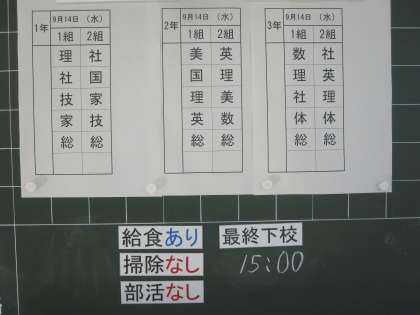 1年 9月14日 (水)
1組 2組
理 社
社 国
技 家
家 技
総 総
2年 9月14日 (水)
1組 2組
美 英
国 理
理 美
英 数
総 総
3年 9月14日 (水)
1組 2組
数 社
理 英
社 理
体 体
総 総
給食あり
掃除なし
部活なし
最終下校
15:00